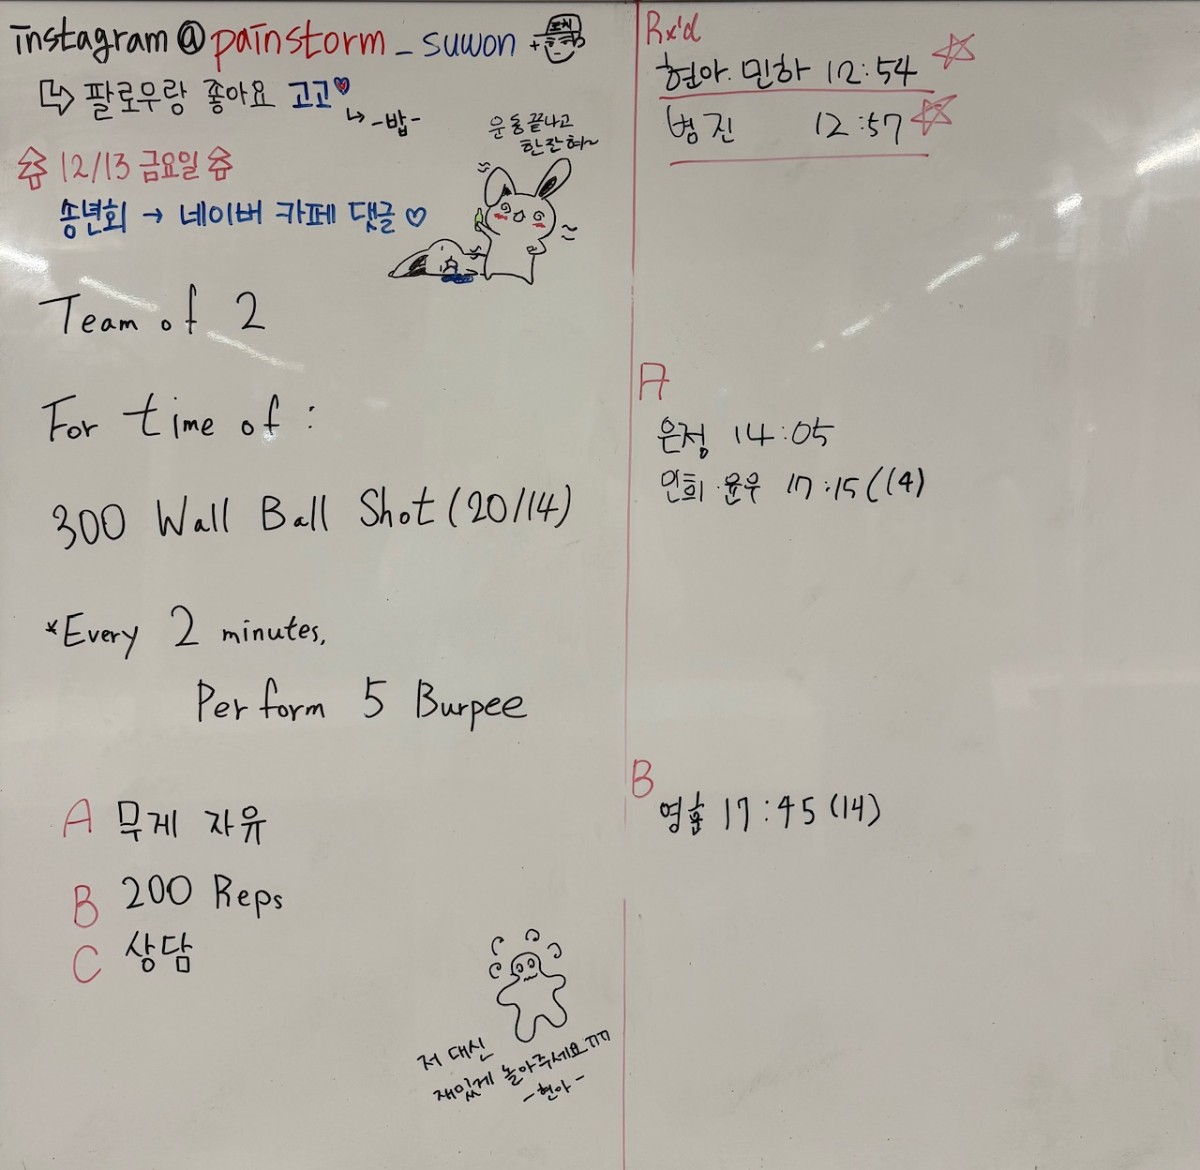 instagram@painstorm_suwon
팔로우랑 좋아요 고고
-밥-
12/13 금요일
송년회 → 네이버 카페 댓글 ♡
운동끝나고
한잔혀~
Team of 2
For time of :
300 Wall Ball Shot (20/14)
*Every 2 minutes,
Perform 5 Burpee
A 무게 자유
B 200 Reps
C 상담
저 대신
재밌게 놀아주세요 ㅠㅠ
-현아-
Rx'd
현아. 민하 12:54
병진 12:57
A
은정 14:05
인희. 윤우 17:15 (14)
B
영훈 17:45 (14)